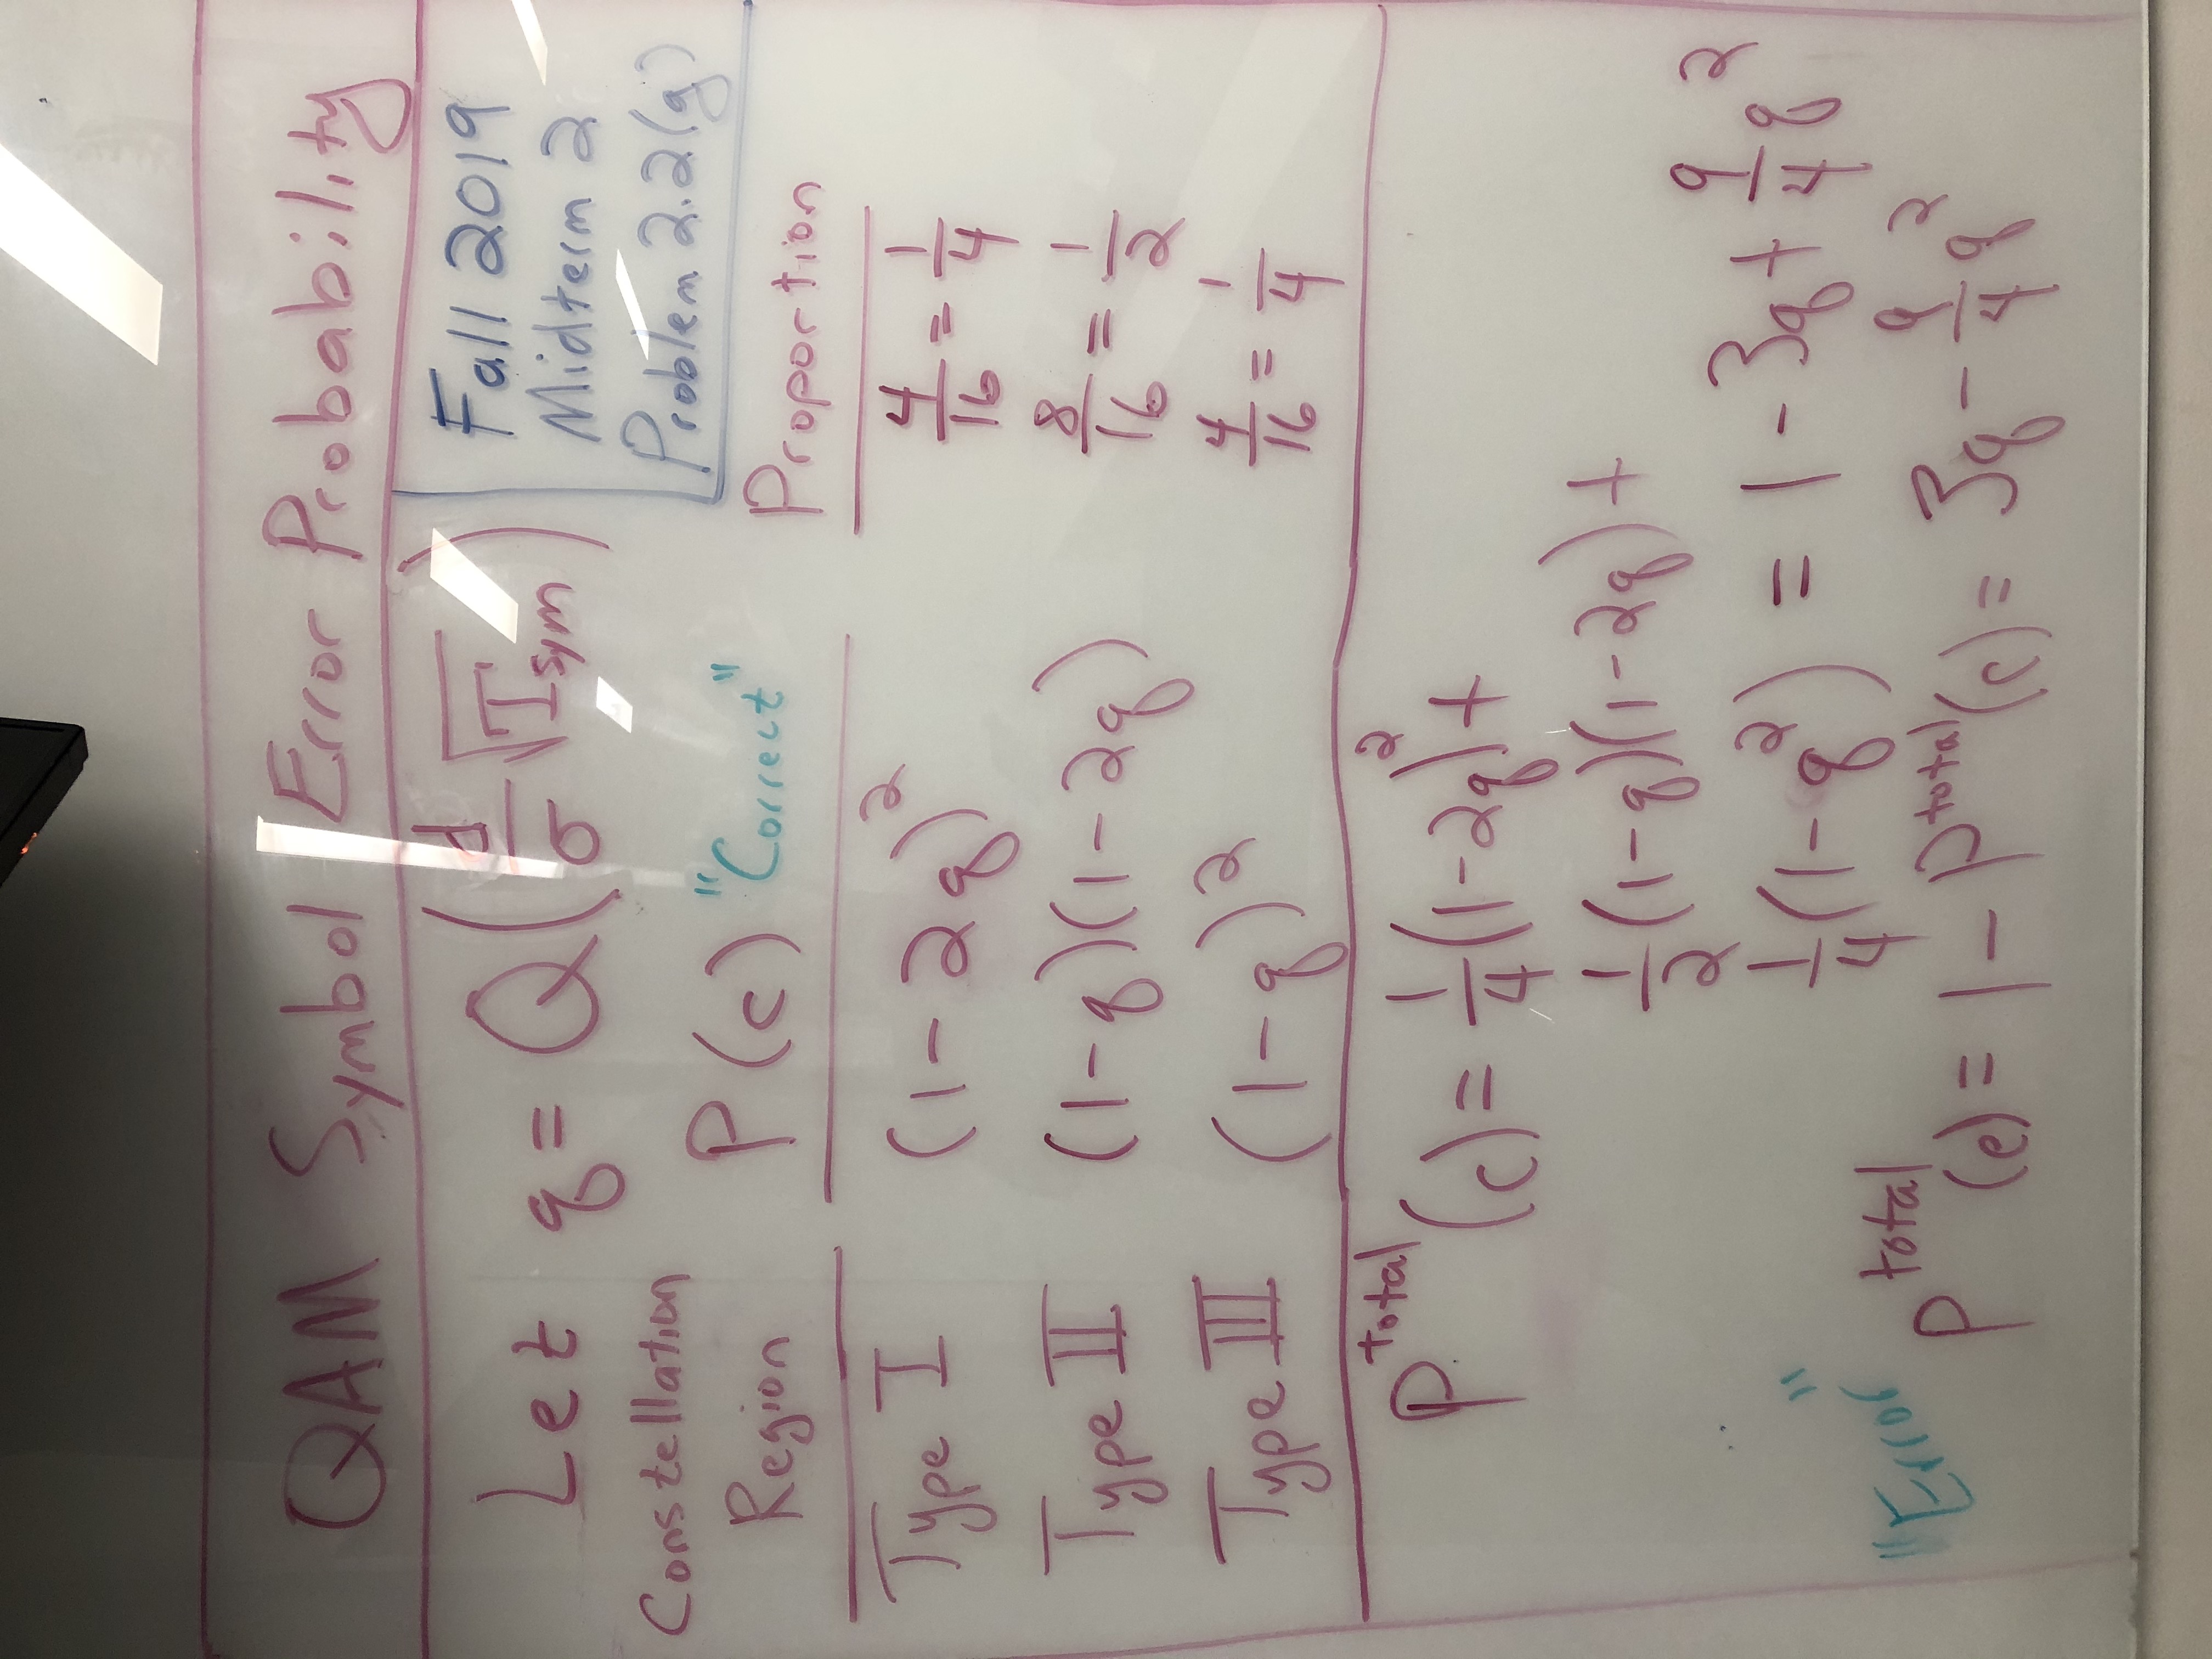 QAM Symbol Error Probability
Let q = Q(d/σ √T_sym)
Fall 2019
Midterm 2
Problem 2.2(g)
Constellation Region P(c) "Correct" Proportion
Type I (1-2q)² 4/16 = 1/4
Type II (1-q)(1-2q) 8/16 = 1/2
Type III (1-q)² 4/16 = 1/4
P^total(c) = 1/4(1-2q)² +
1/2(1-q)(1-2q) +
1/4(1-q²) = 1 - 3q + 9/4 q²
"Error" P^total(e) = 1 - P^total(c) = 3q - 9/4 q²